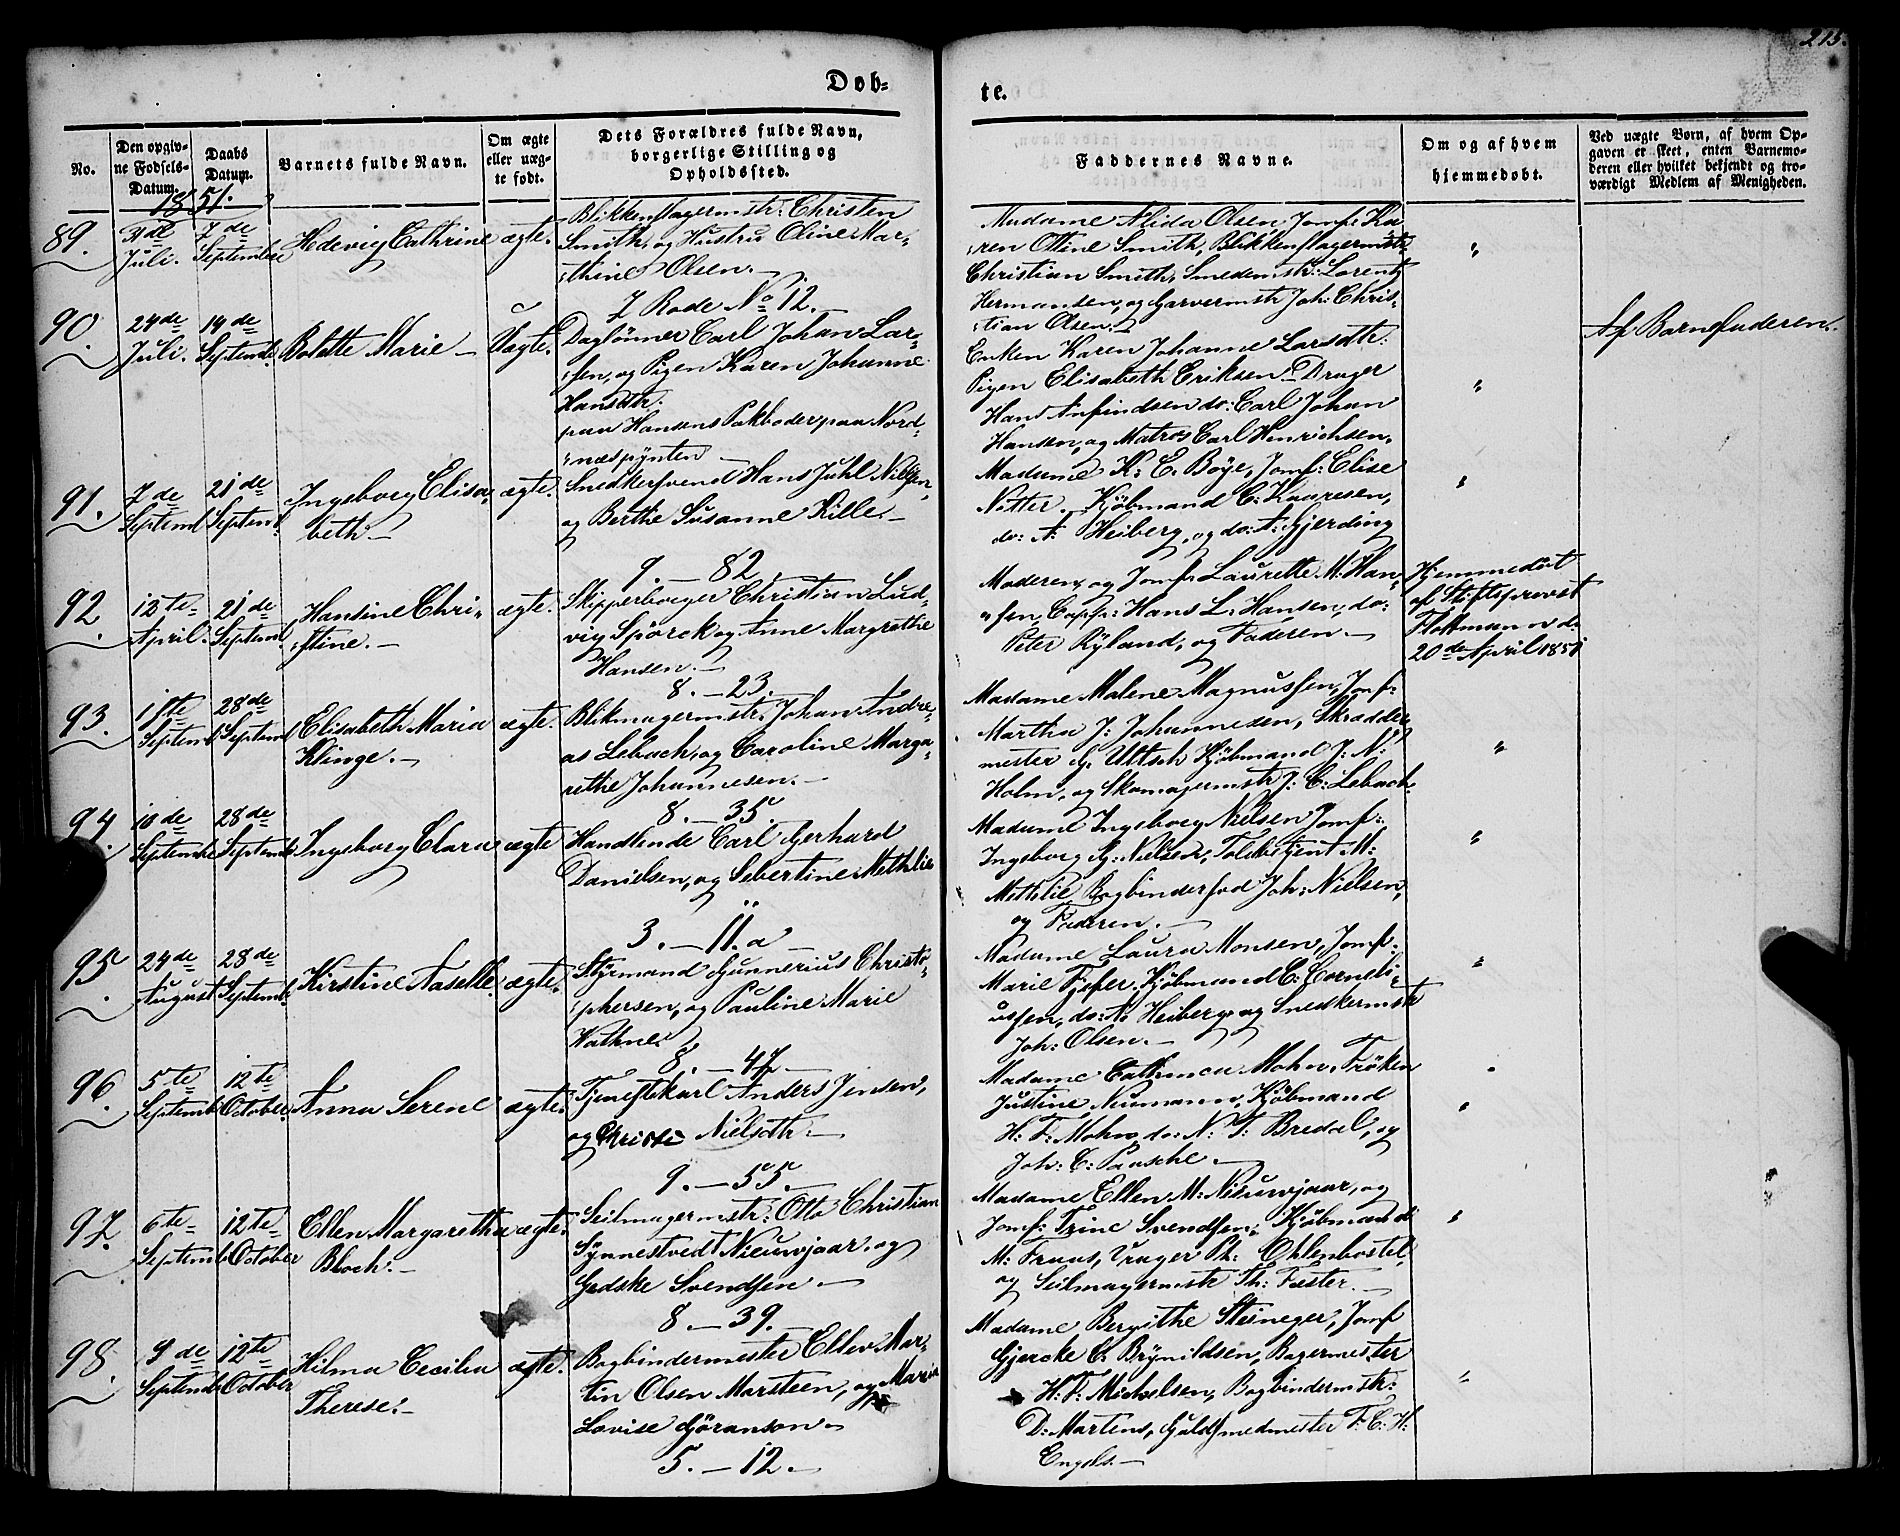 215.
Døb=
te.
No.
Den opgiv-
ne Fødsels-
Datum.
Daabs
Datum.
Barnets fulde Navn.
Om ægte
eller uæg-
te født.
Dets Forældres fulde Navn,
borgerlige Stilling og
Opholdssted.
Faddernes Navne.
Om og af hvem
hjemmedøbt.
Ved uægte Børn, af hvem Op-
gaven er skeet, enten Barnemo-
deren eller hvilket bekjendt og tro-
værdigt Medlem af Menigheden.
1851.
89.
31 de
Juli.
7 de
September
Hedevig Cathrine
ægte.
Blikkenslagermstr: Christen
Smith, og Hustru Oline Mar-
:thine Olsen.—
7 Rode No 12.
Madame Alida Olsen, Jomf: Ka-
:ren Ottine Smith, Blikkenslagermstr:
Christian Smith, Smedemstr: Lorentz
Hermansen, og Garvermstr Joh: Chris-
:tian Olsen.
"
90.
24 de
Juli.
14 de
Septemb.
Bolette Marie —
Uægte.
Daglønner Carl Johan Lar-
:sen, og Pigen Karen Johanne
Hansdtr.
paa Hansens Pakboder paa Nord-
:næspynten —
Enken Karen Johanne Larsdtr:
Pigen Elisabeth Eriksen, Drager
Hans Anfindsen do: Carl Johan
Hansen, og Matros Carl Henrichsen,
"
Af Barnefaderen.
91.
7 de
Septemb
21 de
Septemb.
Ingeborg Elisa-
beth.—
ægte.
Snedkersvend Hans Juhl Nilsen,
og Berthe Susanne Kille.—
9. — 82.
Madame K: E. Böye, Jomf: Elise
Nitter. Kjöbmand C: Kaaresen,
do: A: Heiberg, og do: A: Gjerding
"
92.
12 te
April.
21 de
Septemb.
Hansine Chri-
:stine.—
ægte.
Skipperborger Christian Lud-
vig Spörck og Anne Margrethe
Hansen.—
8. — 23.
Moderen, og Jomf: Laurette M: Han-
:sen, Capt: Hans L: Hansen, do:
Peter Ryland, og Faderen.—
Hjemmedöbt
af Stiftsprovst
Flottmann d:
20 de April 1851
93.
18te
Septemb
28 de
Septemb
Elisabeth Maria
Klinge.—
ægte.
Blikmagermstr: Johan Andre-
as Lebach, og Caroline Marga-
rethe Johannesen.—
8. — 35.
Madame Malene Magnussen, Jomf:
Martha J: Johannesen, Skrædder
mester G: Ultsch Kjöbmand J: N:
Holm, og Skomagermstr J: C: Lebach.
"
94
10 de
Septemb
28 de
Septemb
Ingeborg Clara
ægte
Handlende Carl Gerhard
Danielsen, og Sebertine Methlie
3. — 11. a
Madame Ingeborg Nielsen Jomf:
Ingeborg G: Nielsen, Toldbetjent M:
Methlie Bogbindersvd Joh: Nielsen,
og Faderen.—
"
95
24 de
August
28 de
Septemb.
Kirstine Aaselle.
ægte.
Styrmand Gunnerius Christo-
:phersen, og Pauline Marie
Wathne.
8. — 47.—
Madame Laura Monsen, Jomf:
Marie Fjeper, Kjöbmand E: Corneli-
ussen, do: A: Heiberg, og Snedkermstr
Joh: Olsen.—
"
96
5 te
Septemb
12 te
October
Anna Serene
ægte.
Tjenestekarl Anders Jensen,
og Christi Nielsdtr.—
9. — 55.—
Madame Cathrinea Mohn, Fröken
Justine Neumann, Kjöbmand
H: F: Mohn, do: N: T: Bredal, og
Joh: C: Paasche.—
"
97.
6 te
Septemb
12 te
October
Ellen Margaretha
Bloch.—
ægte.
Seilmagermstr: Otto Christian
Synnestvedt Nieuwjaar, og
Gedske Svendsen —
8. — 39.
Madame Ellen M: Nieuwjaar, og
Jomf: Trine Svendsen, Kjöbmand
M: Fraas, Vrager Ph: Ohlenbostel,
og Seilmagermstr Th: Fæster.—
"
98.
9 de
Septemb
12te
October
Hilma Cecilia
Therese.—
ægte.
Bogbindermester Ellev Mar-
tin Olsen Marsteen, og Maria
Lovise Göranson —
5. — 12.—
Madame Bergithe Steineger, Jomf
Gjercke C: Brynildsen, Bagermester
H: F: Michelsen, Bogbindermstr:
D: Martens, Guldsmedmester F: C: H:
Engels.—
"